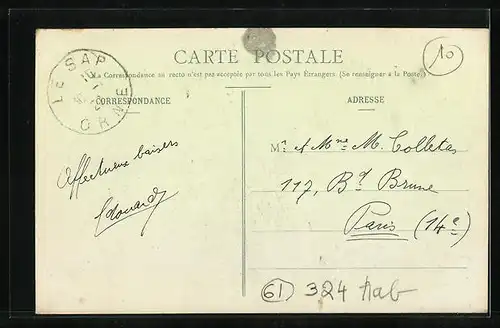 10
CARTE POSTALE
La Correspondance au recto n'est pas acceptée par tous les Pays Étrangers. (Se renseigner à la Poste.)
LE SAP
ORNE
CORRESPONDANCE
ADRESSE
Affectueux baisers
Edouard
Mr et Mme M. Colletas
117, Bd Brune
Paris (14e)
61 324 Aab